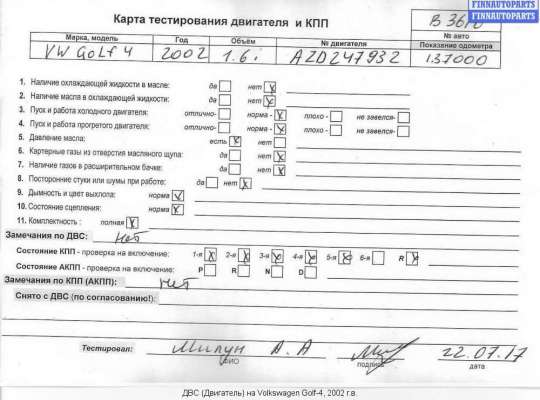 FINNAUTOPARTS
FINNAUTOPARTS
Карта тестирования двигателя и КПП
№ авто
Марка, модель Год Объём № двигателя Показание одометра
VW Golf 4 2002 1.6i AZD247932 137000
1. Наличие охлаждающей жидкости в масле: да нет
2. Наличие масла в охлаждающей жидкости: да нет
3. Пуск и работа холодного двигателя: отлично- норма - плохо - не завелся-
4. Пуск и работа прогретого двигателя: отлично- норма - плохо - не завелся-
5. Давление масла: есть нет
6. Картерные газы из отверстия масляного щупа: да нет
7. Наличие газов в расширительном бачке: да нет
8. Посторонние стуки или шумы при работе: да нет
9. Дымность и цвет выхлопа: норма
10. Состояние сцепления: норма
11. Комплектность : полная
Замечания по ДВС: Нет
Состояние КПП - проверка на включение: 1-я 2-я 3-я 4-я 5-я 6-я R
Состояние АКПП - проверка на включение: P R N D
Замечания по КПП (АКПП): Нет
Снято с ДВС (по согласованию!):
Тестировал: Милун А.А 22.07.17
ФИО подпись дата
ДВС (Двигатель) на Volkswagen Golf-4, 2002 г.в.